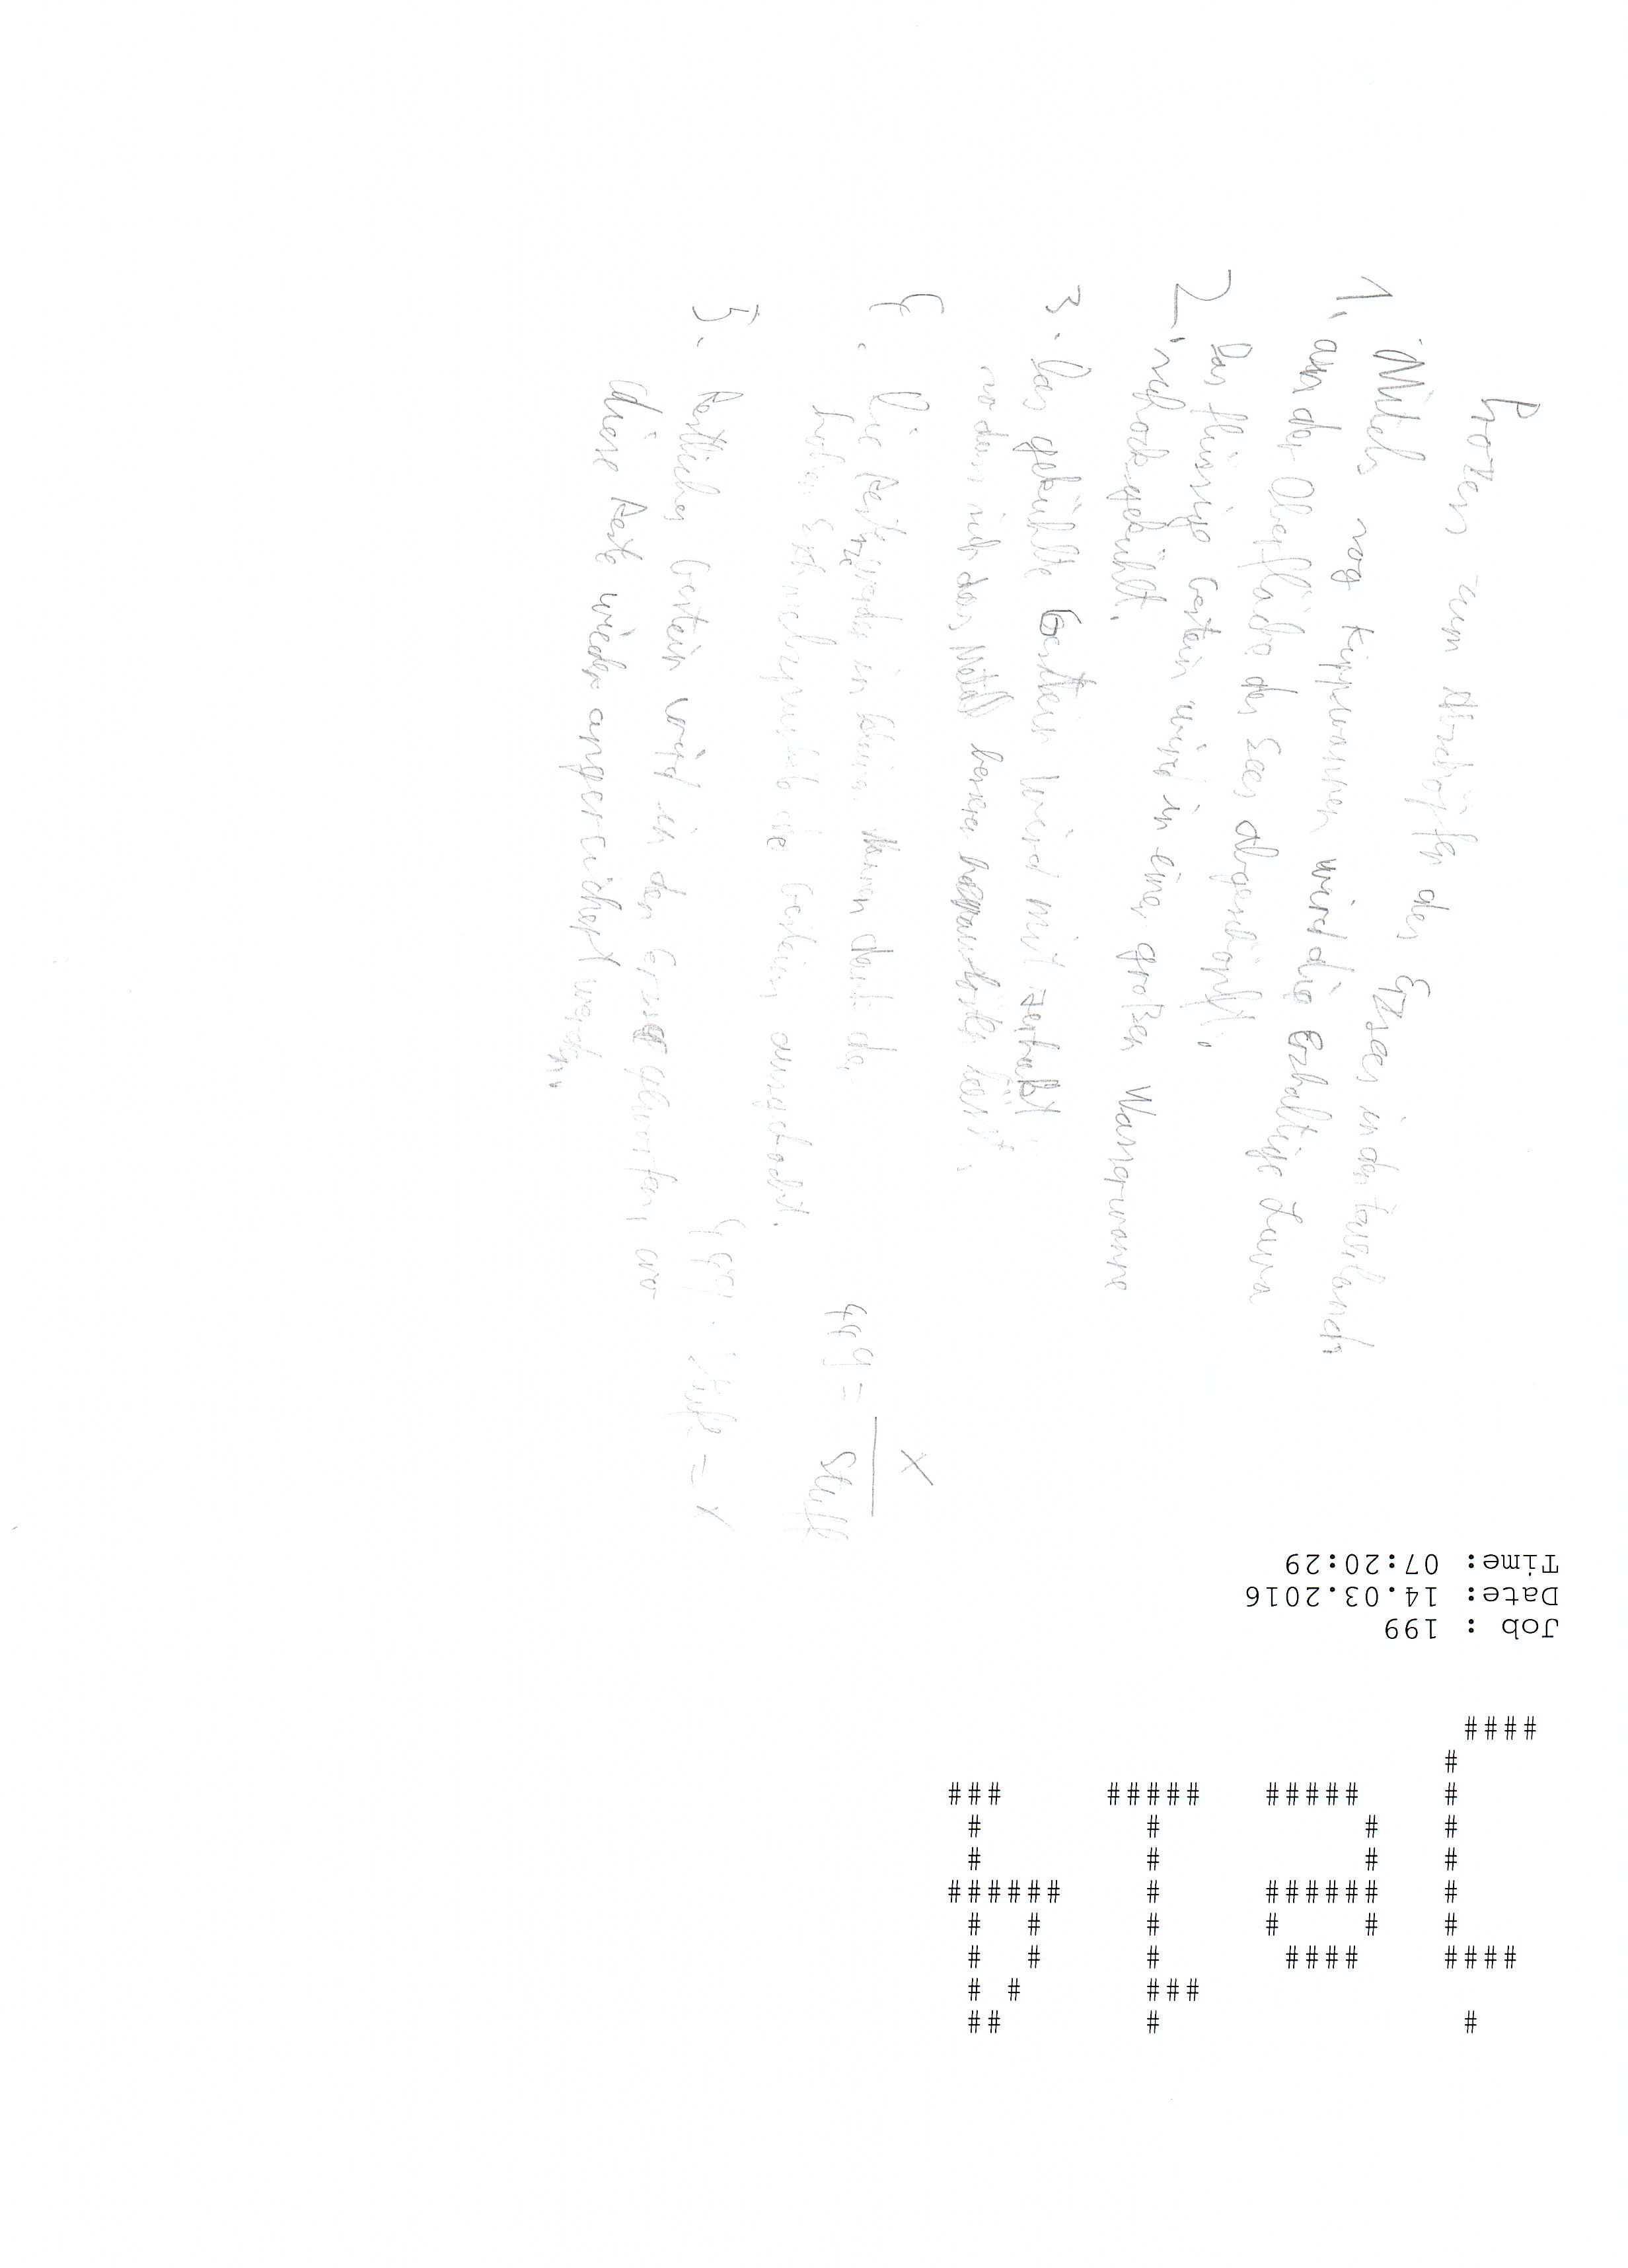 Prozess zum Abschöpfen des Erzsees in den Feuerlanden
1. Mittels sog Kippwannen wird die Erzhaltige Lava
aus der Oberfläche des Sees abgeschöpft.
2. Das flüssige Gestein wird in einer großen Wasserwanne
schockgekühlt.
3. Das gekühlte Gestein wird mit zerhakt
so dass sich das Metall besser herauslösen lässt.
4. Die werden in kleinen Wannen dank der
hohen Schmelzpunkte der Gesteins ausgekocht.
5. Restliches Gestein wird in den Erzsee geworfen, wo
diese Reste wieder angereichert werden.
449 = X / Stuff
449 · Stuff = X
Job : 199
Date: 14.03.2016
Time: 07:20:29